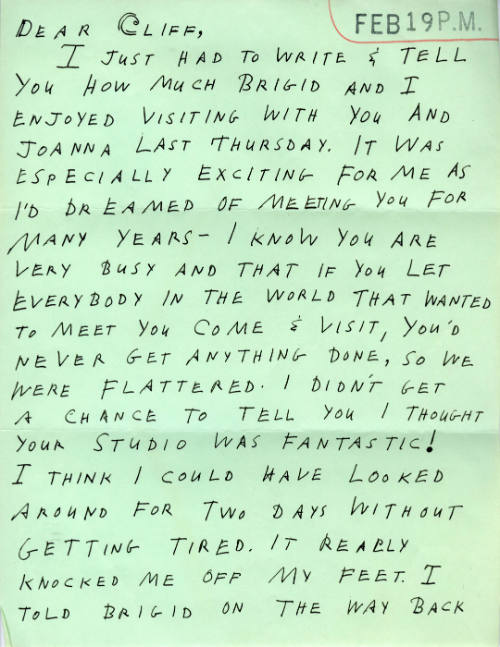 FEB 19 P.M.
DEAR CLIFF,
I JUST HAD TO WRITE & TELL
YOU HOW MUCH BRIGID AND I
ENJOYED VISITING WITH YOU AND
JOANNA LAST THURSDAY. IT WAS
ESPECIALLY EXCITING FOR ME AS
I'D DREAMED OF MEETING YOU FOR
MANY YEARS- I KNOW YOU ARE
VERY BUSY AND THAT IF YOU LET
EVERYBODY IN THE WORLD THAT WANTED
TO MEET YOU COME & VISIT, YOU'D
NEVER GET ANYTHING DONE, SO WE
WERE FLATTERED. I DIDN'T GET
A CHANCE TO TELL YOU I THOUGHT
YOUR STUDIO WAS FANTASTIC!
I THINK I COULD HAVE LOOKED
AROUND FOR TWO DAYS WITHOUT
GETTING TIRED. IT REALLY
KNOCKED ME OFF MY FEET. I
TOLD BRIGID ON THE WAY BACK